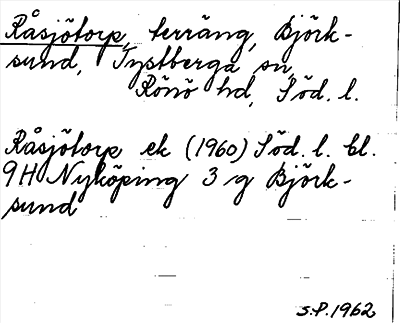 Råsjötorp, terräng, Björk-
sund, Tystberga sn,
Rönö hd, Söd. l.
Råsjötorp ek (1960) Söd. l. bl.
9H Nyköping 3 g Björk-
sund
S.P. 1962